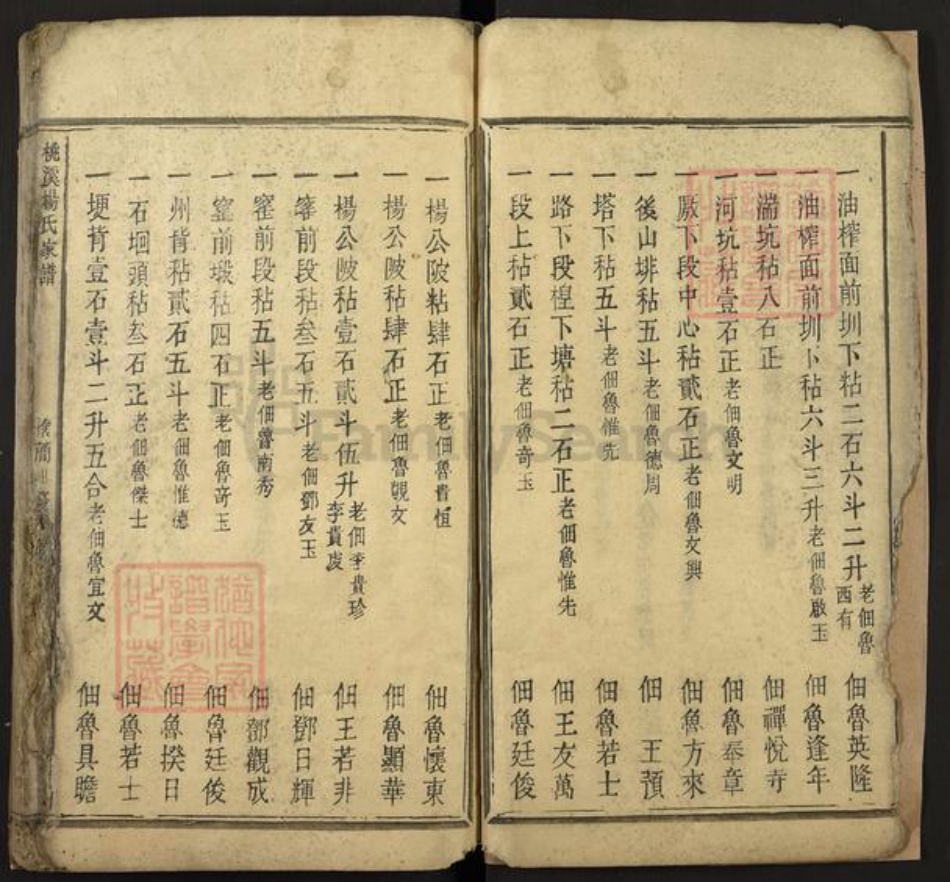 一油榨面前圳下粘二石六斗二升老佃魯西有 佃魯英隆
一油榨面前圳卜秥六斗三升老佃魯啟玉 佃魯逢年
一湍坑秥八石正 佃禪悅寺
一河坑秥壹石正老佃魯文明 佃魯奉章
一厫下段中心秥貳石正老佃魯文興 佃魚方來
一後山埽秥五斗老佃魯德周 佃王預
一塔下秥五斗老佃魯惟先 佃魯若士
一路下段楻下塘秥二石正老佃魯惟先 佃王友萬
一段上秥貳石正老佃魯奇玉 佃魯廷俊
一楊公陂粘肆石正老佃魯貴恒 佃魯懷東
一楊公陂秥肆石正老佃魯覲文 佃魯顯華
一楊公陂秥壹石貳斗伍升老佃李貴珍李貴虔 佃王若非
一窰前段秥叁石五斗老佃鄧友玉 佃鄧日輝
一窰前段秥五斗老佃魯南秀 佃鄧觀成
一窰前塅秥四石正老佃魯奇玉 佃魯廷俊
一州背秥貳石五斗老佃魯惟德 佃魯揆日
一石堌頭秥叁石正老佃魯傑士 佃魯若士
一埂背壹石壹斗二升五合老佃魯宜文 佃魯具瞻
桃溪楊氏家譜
FamilySearch